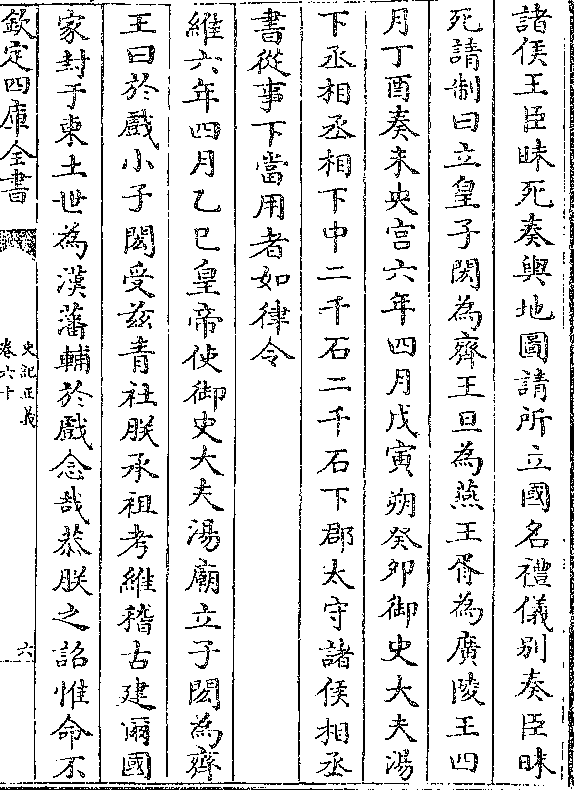 諸侯王臣昧死奏輿地圖請所立國名禮儀别奏臣昧
死請制曰立皇子閎為齊王旦為燕王胥為廣陵王四
月丁酉奏未央宫六年四月戊寅朔癸卯御史大夫湯
下丞相丞相下中二千石二千石下郡太守諸侯相丞
書從事下當用者如律令
維六年四月乙巳皇帝使御史大夫湯廟立子閎為齊
王曰於戲小子閎受兹青社朕承祖考維稽古建爾國
家封于東土世為漢藩輔於戲念哉恭朕之詔惟命不
欽定四庫全書
史記正義
卷六十
六